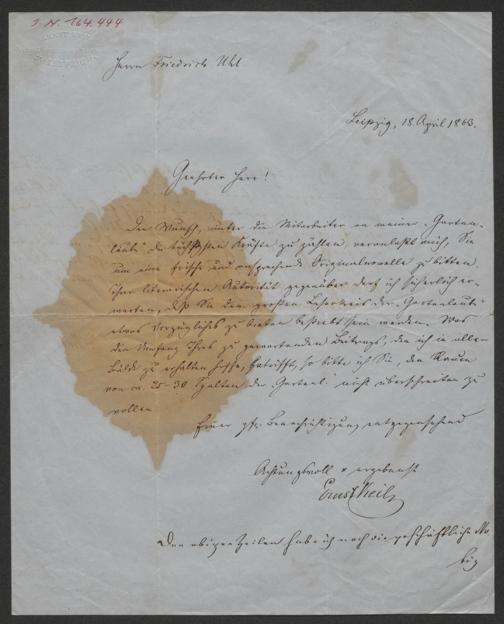 J. N. 164.444
Herrn Friedrich Uhl
Leipzig, 18. April 1863.
Geehrter Herr!
Der Wunsch, unter die Mitarbeiter an meiner „Garten-
laube“ die tüchtigsten Kräfte zu zählen, veranlaßt mich, Sie
um eine frische und ansprechende Originalnovelle zu bitten.
Ihrer literarischen Autorität gegenüber darf ich sicherlich er-
warten, daß Sie dem großen Leserkreis der „Gartenlaube“
etwas Vorzügliches zu bieten bestrebt sein werden. Was
den Umfang Ihres zu erwartenden Beitrags, den ich in aller
Bälde zu erhalten hoffe, betrifft, so bitte ich Sie, den Raum
von ca. 25-30 Spalten der Gartenl. nicht überschreiten zu
wollen.
Ihrer gef. Benachrichtigung entgegensehend
Achtungsvoll u ergebenst
Ernst Keil
Den obigen Zeilen habe ich noch die geschäftliche